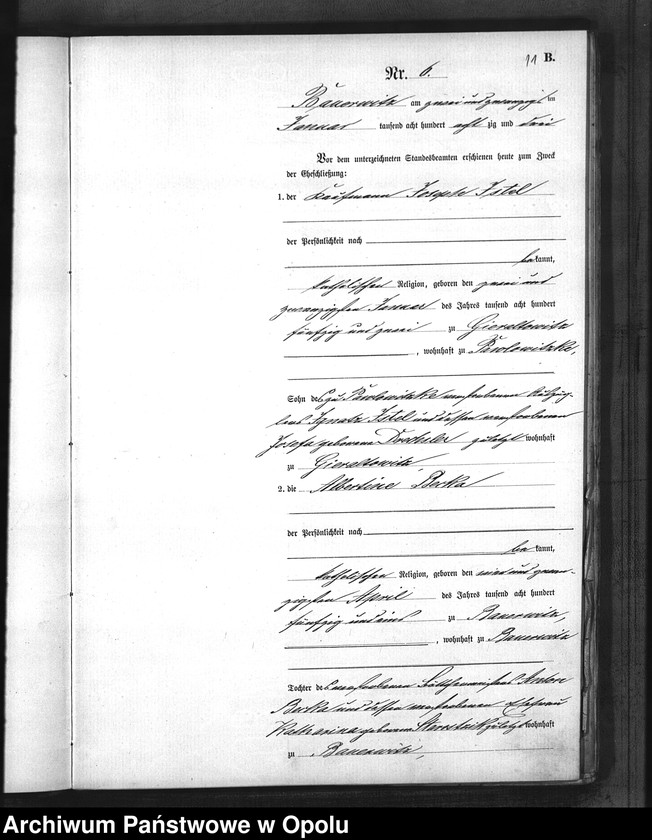 11 B.
Nr. 6.
Bauerwitz am zwei und zwanzigsten
Januar tausend acht hundert acht zig und drei
Vor dem unterzeichneten Standesbeamten erschienen heute zum Zweck
der Eheschließung:
1. der Kaufmann Joseph Istel
der Persönlichkeit nach
be kannt,
katholischer Religion, geboren den zwei und
zwanzigsten Januar des Jahres tausend acht hundert
fünfzig und zwei zu Gieraltowitz
, wohnhaft zu Pawlowitzke,
Sohn des zu Pawlowitzke verstorbenen
Ignatz Istel und dessen verstorbenen
Josefa geborene zuletzt wohnhaft
zu Gieraltowitz,
2. die Albertine Berka
der Persönlichkeit nach
be kannt,
katholischer Religion, geboren den und zwan-
zigsten April des Jahres tausend acht hundert
fünfzig und eins zu Bauerwitz,
, wohnhaft zu Bauerwitz
Tochter des verstorbenen Anton
Berka und dessen verstorbenen Ehefrau
Katharina geborenen zuletzt wohnhaft
zu Bauerwitz,
Archiwum Państwowe w Opolu